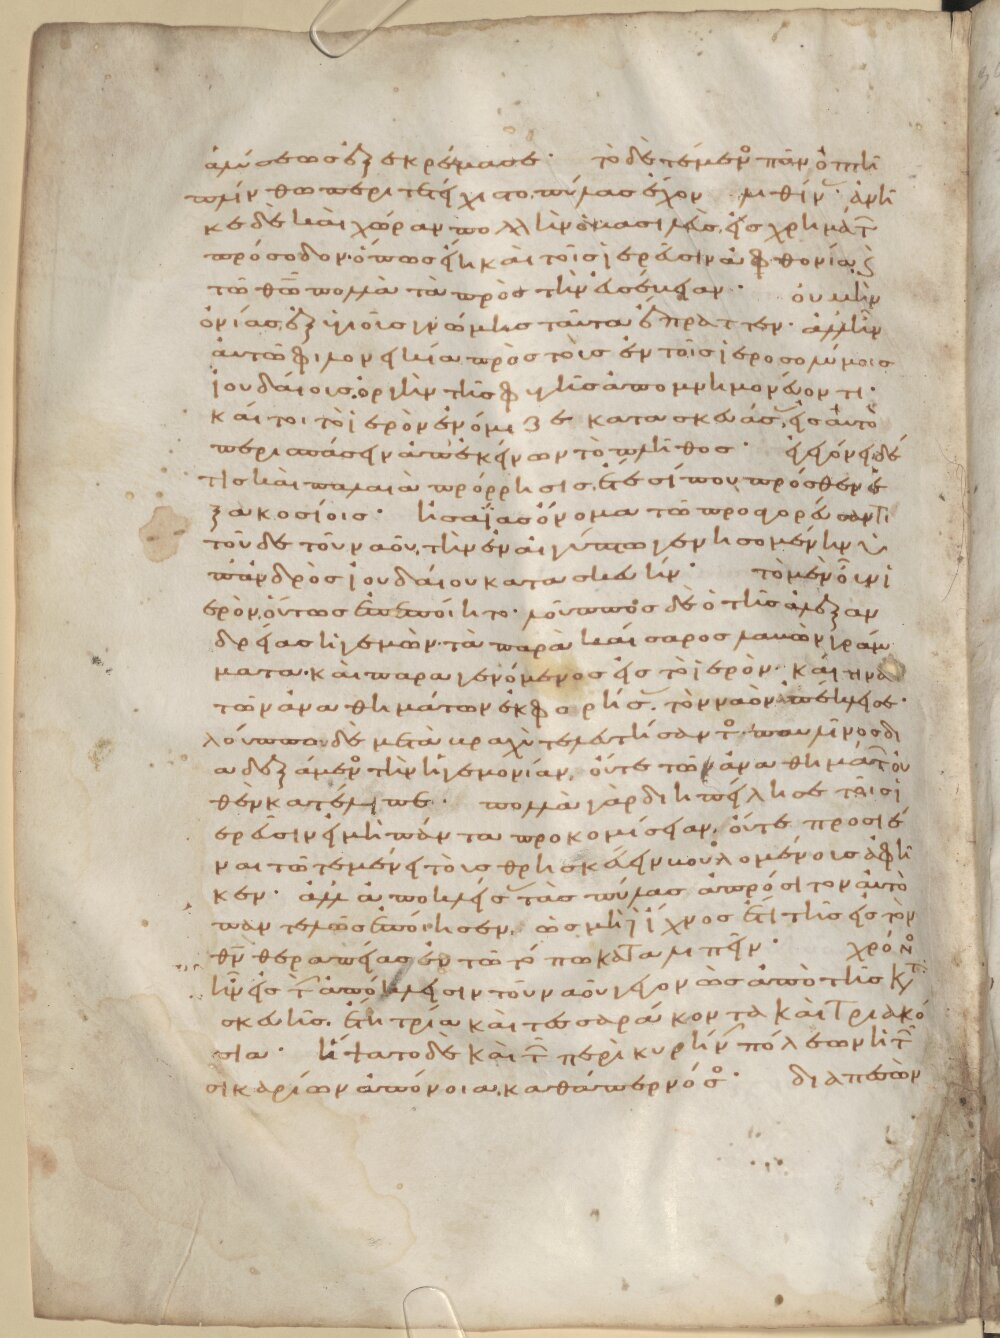 ἁλύσεως ἐξεκρέμασε· τὸ δὲ τέμενος πᾶν ὀπτῆ
πλίνθω περιτετείχιστο πύλας ἔχον λιθίνας· ἀνῆ
κε δὲ καὶ χώραν πολλὴν ὁ βασιλεὺς εἰς χρημάτων
πρόσοδον· ὅπως εἴη καὶ τοῖς ἱερεῦσιν ἀφθονία καὶ
τῶ θεῶ πολλὰ τὰ πρὸς τὴν εὐσέβειαν· οὐ μὴν
ὀνίας ἐξ ὑγιοῦς γνώμης ταῦτα ἔπραττεν· ἀλλ' ἦν
αὐτῶ φιλονεικία πρὸς τοὺς ἐν τοῖς ἱεροσολύμοις
ἰουδαίους ὀργὴν τῆς φυγῆς ἀπομνημονεύοντι·
καί τοι τὸ ἱερὸν ἐνόμιζε κατασκευάσας εἰς αὐτὸ
περισπάσειν ἀπ' ἐκείνων τὸ πλῆθος· ἐγεγόνει δέ
τις καὶ παλαιὰ πρόρρησις ἔτεσί που πρόσθεν ἑ
ξακοσίοις· ἡσαΐας ὄνομα τῶ προαγορεύσαντι
τοῦδε τοῦ ναοῦ τὴν ἐν αἰγύπτω γενησομένην ὑ
π' ἀνδρὸς ἰουδαίου κατασκευήν· τὸ μὲν οὖν ἱ
ερὸν οὕτως ἐπεποίητο· λοῦππος δὲ ὁ τῆς ἀλεξαν
δρείας ἡγεμὼν· τὰ παρὰ καίσαρος λαβὼν γράμ
ματα· καὶ παραγενόμενος εἰς τὸ ἱερὸν· καί τινα
τῶν ἀναθημάτων ἐκφορήσας τὸν ναὸν ἀπέκλεισε·
λούππου δὲ μετὰ βραχὺ τελευτήσαντος· παυλῖνος δι
αδεξάμενος τὴν ἡγεμονίαν, οὔτε τῶν ἀναθημάτων οὐ
θὲν κατέλιπε· πολλὰ γὰρ διηπείλησε τοῖς ἱ
ερεῦσιν εἰ μὴ πάντα προκομίσειαν, οὔτε προσιέ
ναι τῶ τεμένει τοὺς θρησκεύειν βουλομένους ἀφῆ
κεν· ἀλλ' ἀποκλείσας τὰς πύλας ἀπρόσιτον αὐτὸ
παντελῶς ἐποίησεν, ὡς μὴ ἴχνος ἔτι τῆς εἰς τὸν
θεὸν θεραπείας ἐν τῶ τόπω καταλιπεῖν· χρόνος
ἦν εἰς τὴν ἀπόκλεισιν τοῦ ναοῦ γεγονὼς ἀπὸ τῆς κατα
σκευῆς, ἔτη τρία καὶ τεσσαράκοντα καὶ τριακό
σια· ἥψατο δὲ καὶ τῶν περὶ κυρήνην πόλεων ἡ τῶν
σικαρίων ἀπόνοια, καθάπερ νόσος· διαπεσὼν